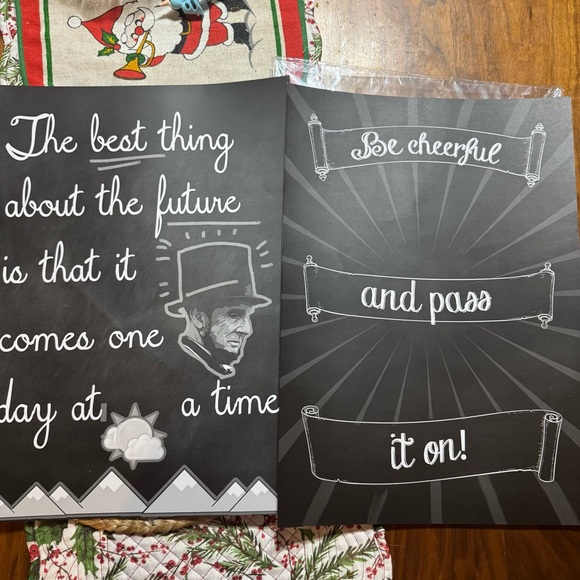 The best thing
about the future
is that it
comes one
day at a time
Be cheerful
and pass
it on!